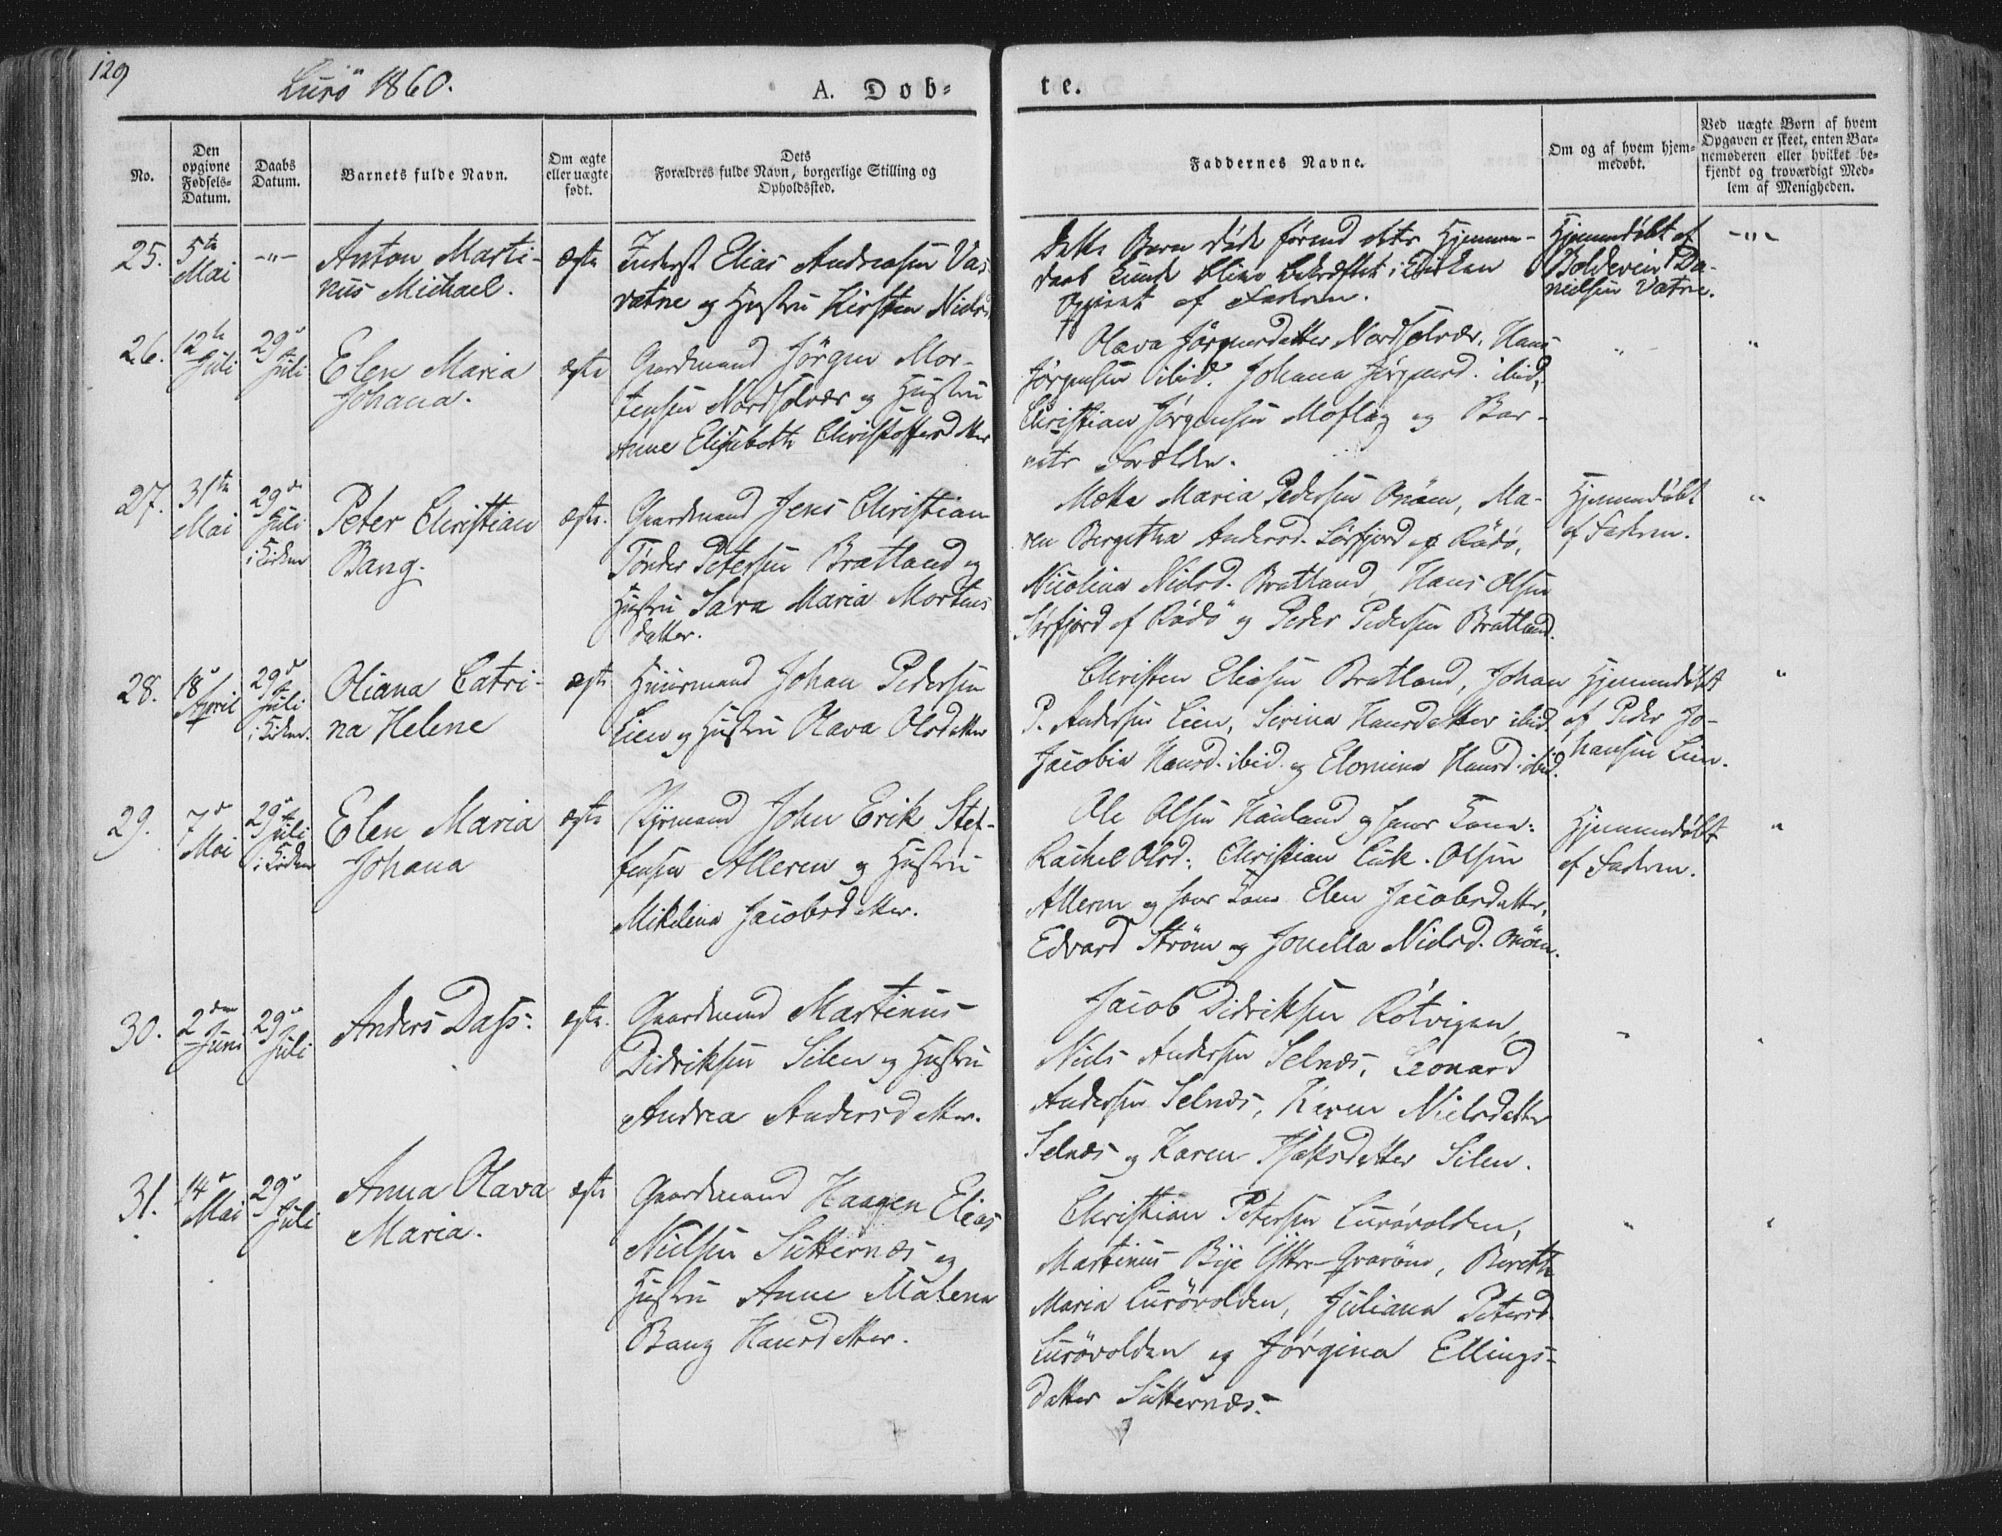 129
Lurö 1860.
A. Døb-
te.
No.
Den opgivne Fødsels-Datum.
Daabs Datum.
Barnets fulde Navn.
Om ægte eller uægte født.
Dets Forældres fulde Navn, borgerlige Stilling og Opholdssted.
Faddernes Navne.
Om og af hvem hjemmedøbt.
Ved uægte Børn af hvem Opgaven er skeet, enten Barnemoderen eller hvilket bekjendt og troværdigt Medlem af Menigheden.
25. 5te Mai -"- Anton Marti-
nus Michael. ægte
Inderst Elias Andreasen Vas
vatne og Hustru Kirsten Niels
Dette Barn døde førend dets Hjemme-
daab kunde blive bekræftet i Kirken
af Faderen.
Hjemmedøbt af
Boldevin Da-
nielsen Vatne.
-"-
26. 12te Juli 29de Juli
Elen Maria
Johana. ægte
Gaardmand Jørgen Mor-
tensen Nordsolvær og Hustru
Anne Elisabeth Christoffersdatter
Olava Jørgensdatter Nordsolvær, Hans
Jørgensen ibid. Johana Jørgensd. ibid,
Christian Jørgensen Moflag og Bar-
nets Forældre.
" "
27. 31te Mai 29de Juli i Kirken
Peter Christian
Bang. ægte.
Gaardmand Jens Christian
Tønder Petersen Bratland og
Hustru Sara Maria Mortens
datter.
Mætte Maria Pedersen Onøen, Ma-
ren Bergitha Andersd. Sørfjord af Rödö,
Nicolina Nielsd. Bratland, Hans Olsen
Sørfjord af Rödö og Peder Pedersen Bratland.
Hjemmedøbt
af Faderen.
"
28. 18de April 29de Juli i Kirken.
Oliana Catri-
na Helene ægte
Huusmand Johan Pedersen
Lien og Hustru Olava Olsdatter
Christen Eliasen Bratland, Johan
P. Andersen Lien, Serina Hansdatter ibid.
Jacobia Hansd. ibid. og Elomina Hansd. ibid.
Hjemmedøbt
af Peder Jo-
hansen Lien.
"
29. 7de Mai 29de Juli i Kirken
Elen Maria
Johana ægte
John Erik Stef-
fensen Alleren og Hustru
Mikelina Jacobsdatter.
Ole Olsen Hauland og hans Kone
Rachel Olsd. Christian Erik Olsen
Alleren og hans Kone Elen Jacobsdatter,
Edvard Strøm og Jonella Nielsd. Onøen.
Hjemmedøbt
af Faderen.
"
30. 2den Juni 29de Juli
Anders Dass. ægte.
Gaardmand Martinus
Didriksen Silen og Hustru
Andrea Andersdatter.
Jacob Didriksen Rötvigen,
Niels Andersen Selnæs, Leonard
Andersen Selnæs, Karen Nielsdatter
Selnæs og Karen Isaksdatter Silen.
" "
31. 14de Mai 29de Juli
Anna Olava
Maria. ægte
Gaardmand Haagen Elias
Nielsen Sutternæs og
Hustru Anne Malena
Bang Hansdatter.
Christian Petersen Lurövolden,
Martinus Bye Yttre Qvarøen, Berethe
Maria Lurövolden, Juliana Petersd.
Lurövolden og Jørgina Ellings-
datter Sutternæs.
" "